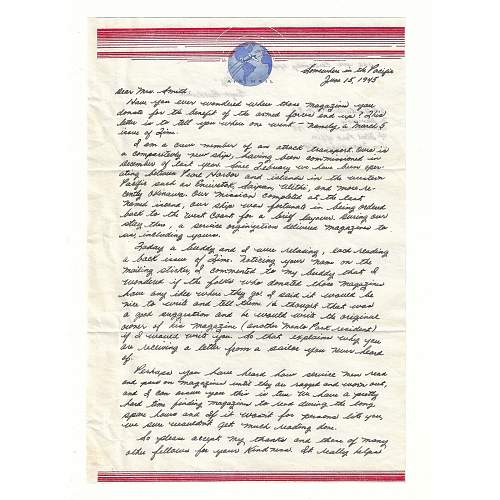 AIR MAIL
Somewhere in the Pacific
June 15, 1945
Dear Mrs. Smith:
Have you ever wondered where those magazines you
donate for the benefit of the armed forces end up? This
letter is to tell you where one went - namely, a March 5
issue of Time.
I am a crew member of an attack transport. Ours is
a comparitively new ship, having been commissioned in
December of last year. Since February we have been oper-
ating between Pearl Harbor and islands in the western
Pacific such as Eniwetok, Saipan, Ulithi, and more re-
cently Okinawa. Our mission completed at the last
named island, our ship was fortunate in being ordered
back to the west coast for a brief layover. During our
stay there, a service orginization delivered magazines to
us, including yours.
Today a buddy and I were relaxing, each reading
a back issue of Time. Noticing your name on the
mailing sticker, I commented to my buddy that I
wondered if the folks who donated those magazines
have any idea where they go. I said it would be
nice to write and tell them. He thought that was
a good suggestion and he would write the original
owner of his magazine (another Menlo Park resident)
if I would write you. So that explains why you
are receiving a letter from a sailor you never heard
of.
Perhaps you have heard how service men read
and pass on magazines until they are ragged and worn out,
and I can assure you this is true. We have a pretty
hard time finding magazines to read during the long
spare hours and if it wasn't for persons like you,
we sure wouldn't get much reading done.
So please accept my thanks and those of many
other fellows for your kindness. It really helps